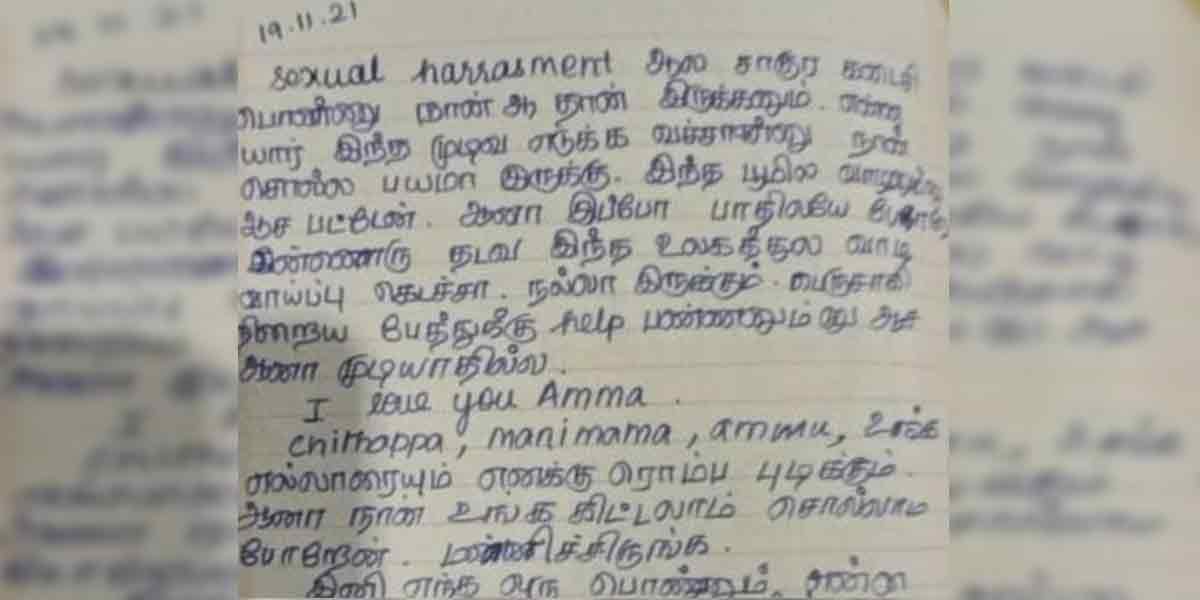 19.11.21
sexual harrasment ஆல சாகுற கடைசி
பொண்ணு நான் ஆ தான் இருக்கணும். என்ன
யார் இந்த முடிவ எடுக்க வச்சாங்கன்னு நான்
சொல்ல பயமா இருக்கு. இந்த பூமில வாழணும்னு
ஆச பட்டேன். ஆனா இப்போ பாதிலயே
இன்னொரு தடவ இந்த உலகத்துல வாழ
வாய்ப்பு கெடச்சா. நல்லா இருக்கும். பெருசாகி
நிறைய பேத்துக்கு help பண்ணணும்னு ஆச
ஆனா முடியாதில்ல.
I love you Amma.
chithappa, manimama, ammu, உங்க
எல்லாரையும் எனக்கு ரொம்ப புடிக்கும்.
ஆனா நான் உங்க கிட்டலாம் சொல்லாம
போறேன். மன்னிச்சிருங்க.
இனி எந்த ஒரு பொண்ணும்,